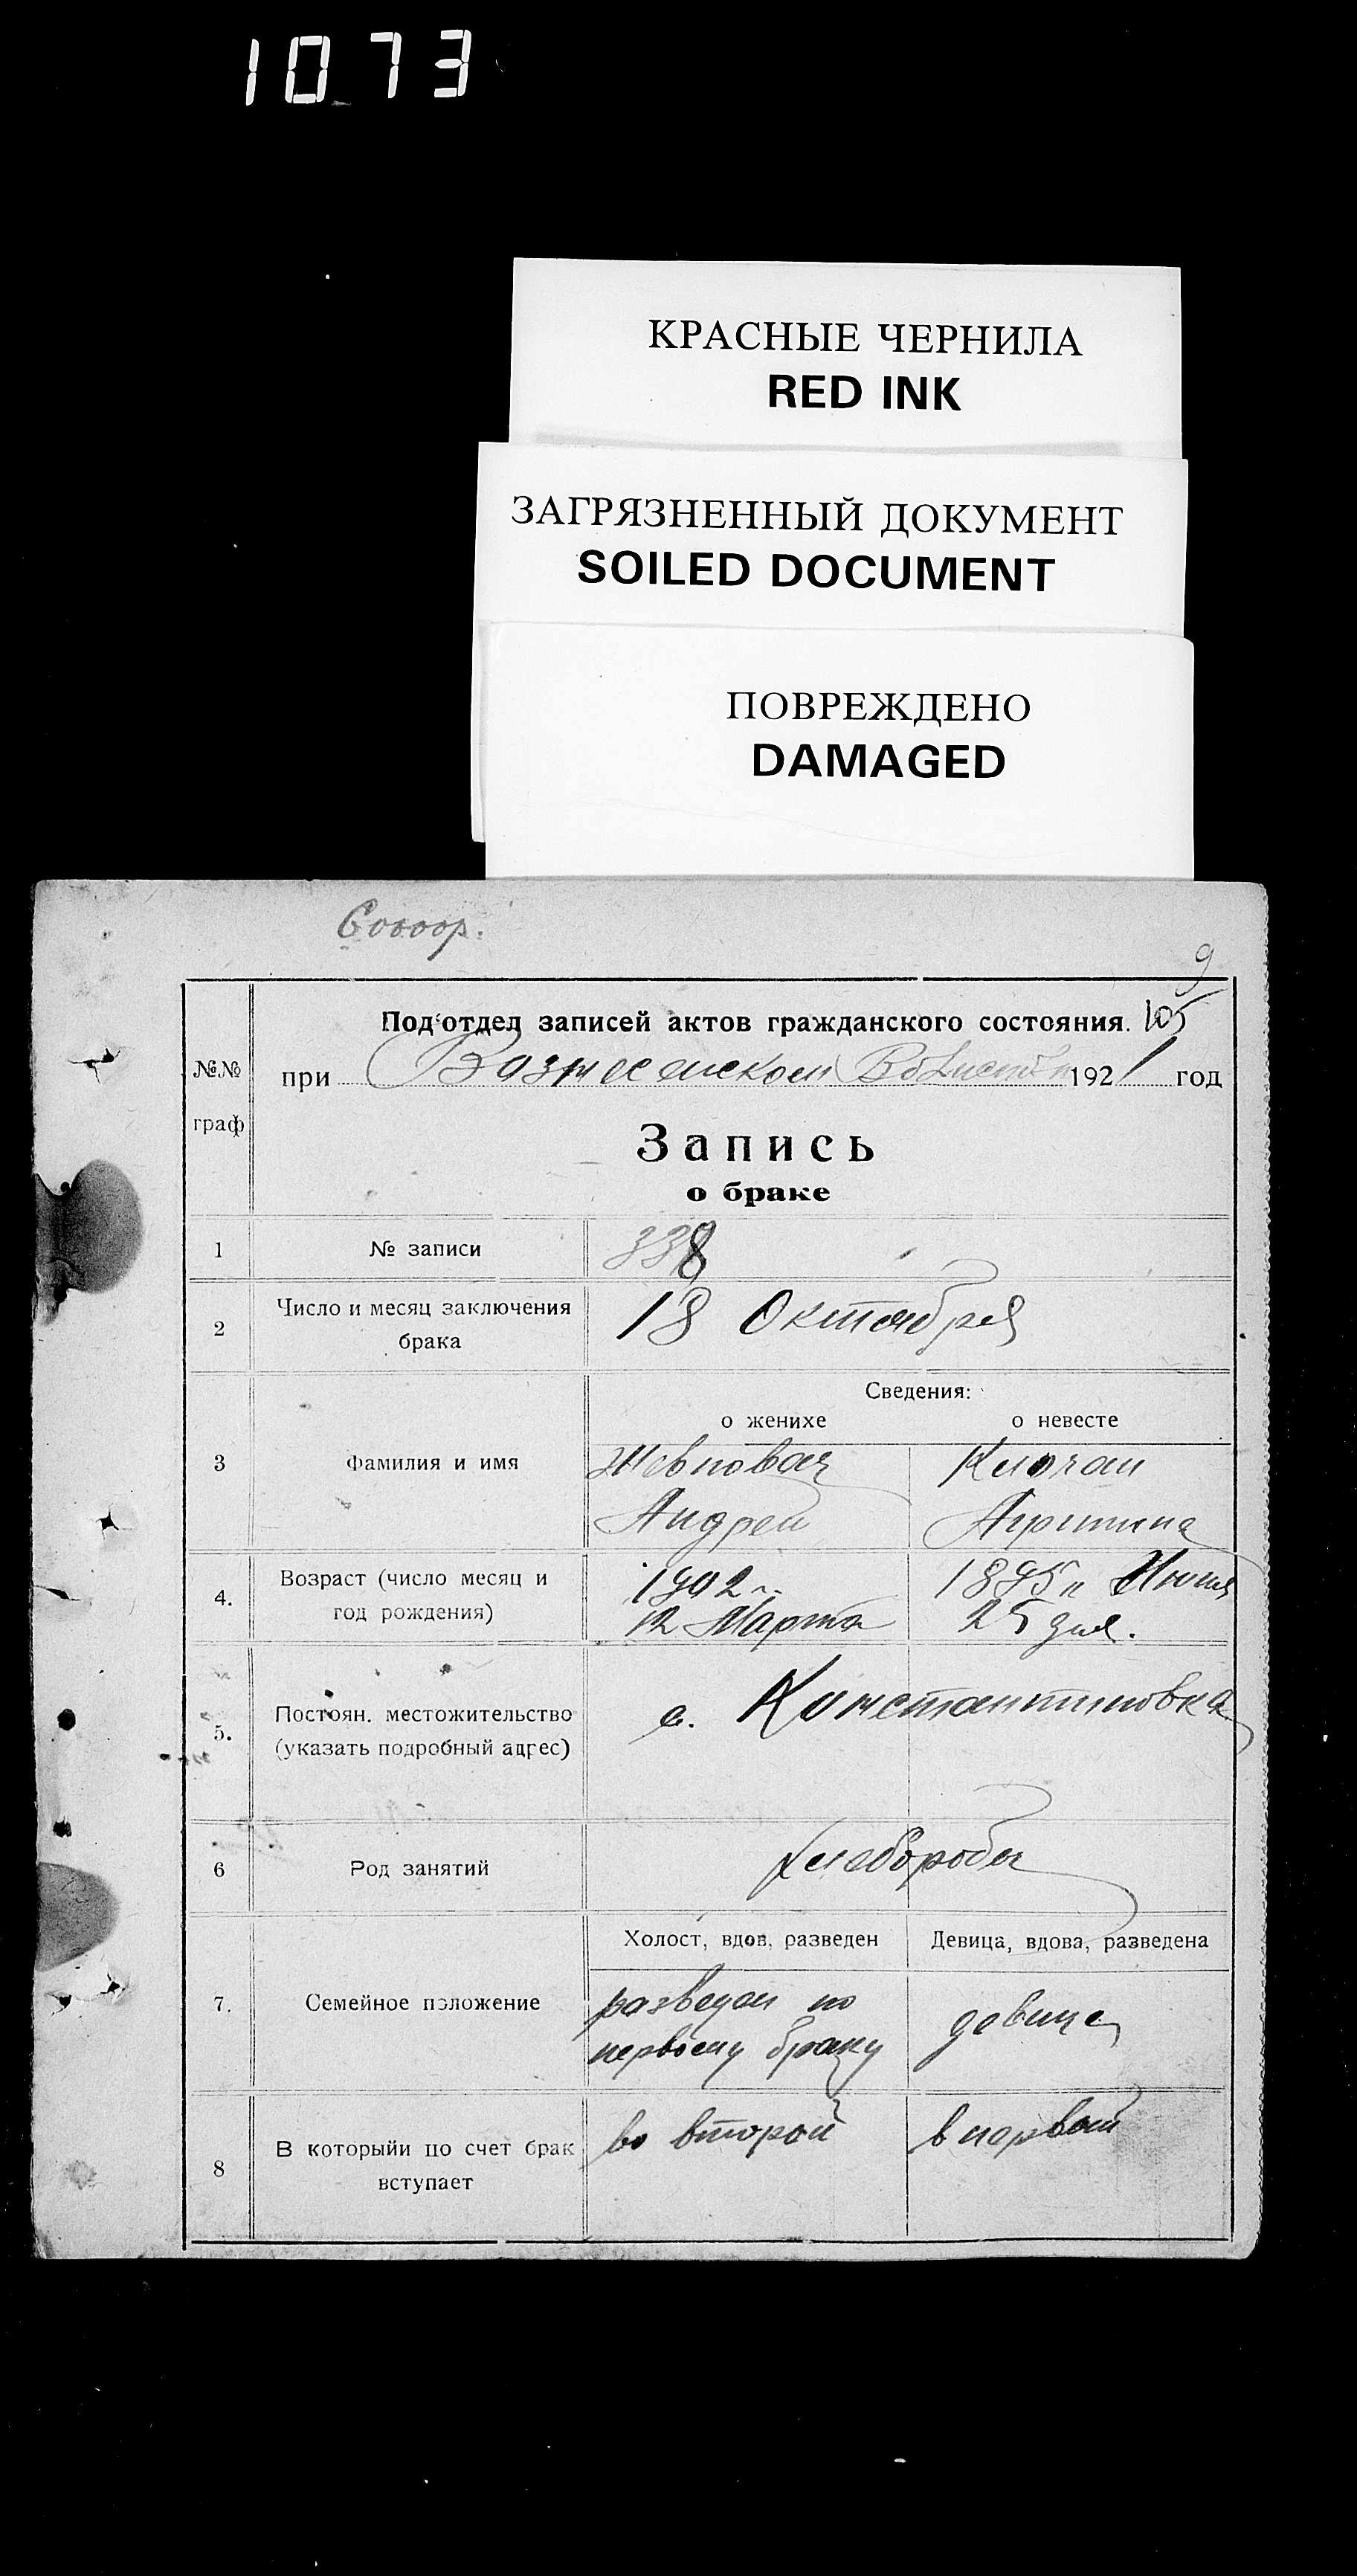 1073
КРАСНЫЕ ЧЕРНИЛА
RED INK
ЗАГРЯЗНЕННЫЙ ДОКУМЕНТ
SOILED DOCUMENT
ПОВРЕЖДЕНО
DAMAGED
9
Под‘отдел записей актов гражданского состояния. 105
№№ при Вознесенском 1921 год
граф
Запись
о браке
1 № записи 338
2 Число и месяц заключения 18 Октября
брака
Сведения:
о женихе о невесте
3 Фамилия и имя
Андрей
4. Возраст (число месяц и 1902
год рождения) 12 Марта 25 дня.
5. Постоян. местожительство с. Константиновка
(указать подробный адрес)
6 Род занятий хлеборобы
Холост, вдов, разведен Девица, вдова, разведена
7. Семейное положение разведен по девица
первому браку
8 В которыйи по счет брак во второй в первый
вступает